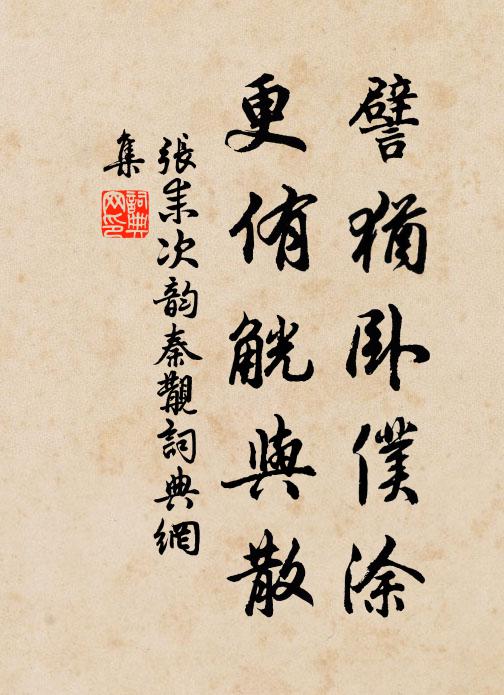 譬猶卧僕涂
更侑觥與散
張耒次韵秦觀詞典網
集
詞典
网印